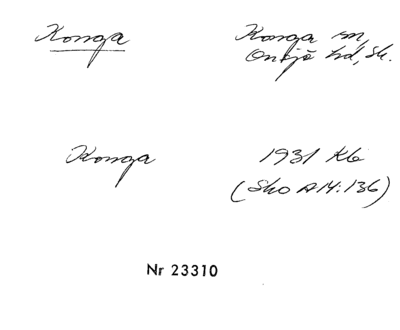 Konga Konga sn,
Onsjö hd, Sk.
Konga 1931 Kb
(Sko A14:136)
Nr 23310